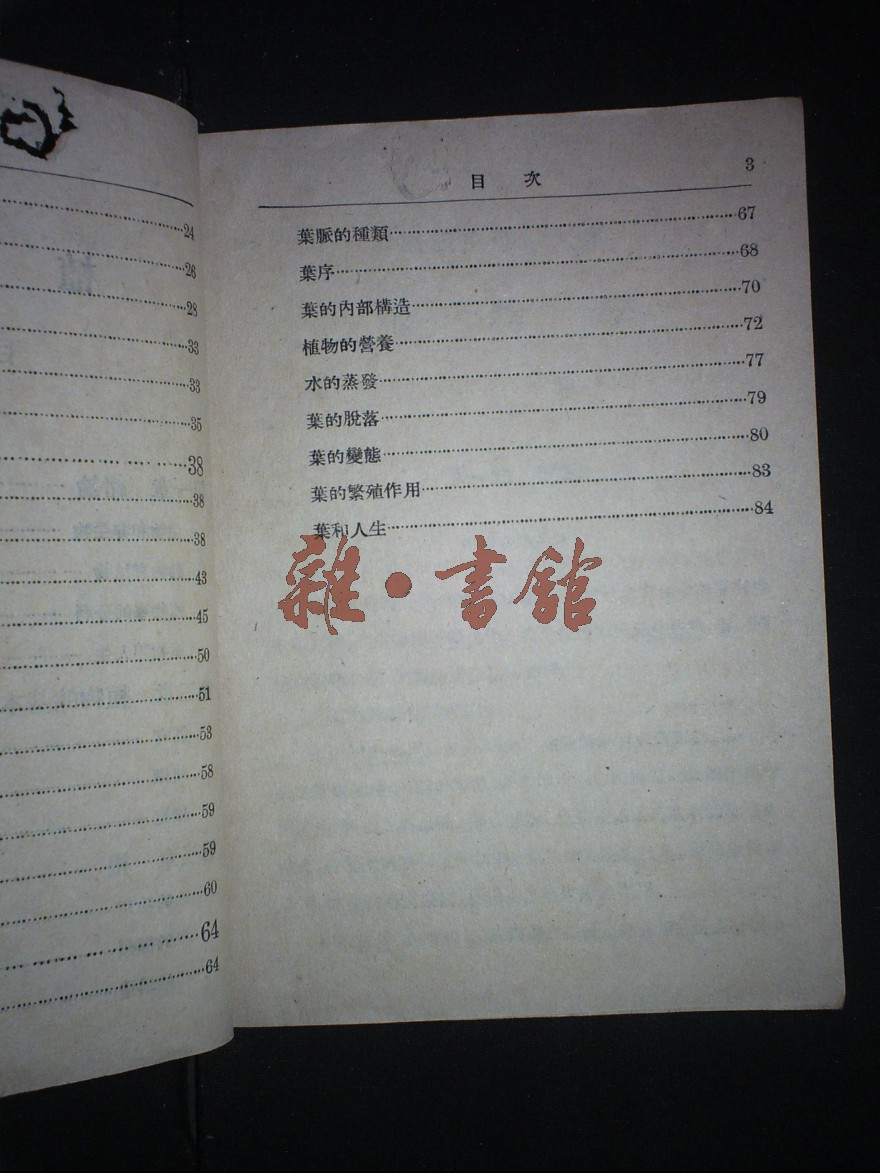 24
26
28
33
33
35
38
38
38
43
45
50
51
53
58
59
59
60
64
64
目 次 3
葉脈的種類 67
葉序 68
葉的內部構造 70
植物的營養 72
水的蒸發 77
葉的脫落 79
葉的變態 80
葉的繁殖作用 83
葉和人生 84
雜·書館